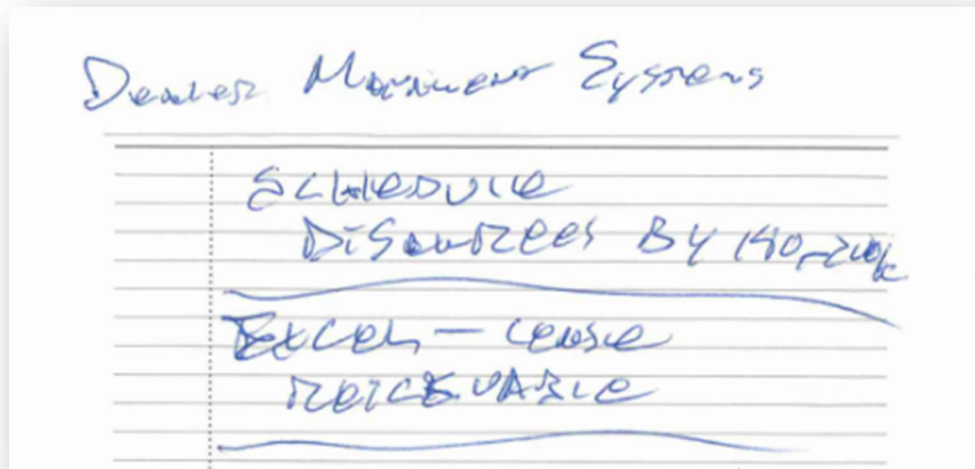 Dealer Movement Systems
SCHEDULE
DISAGREES BY 190-200k
EXCEL - LEASE
RECEIVABLE